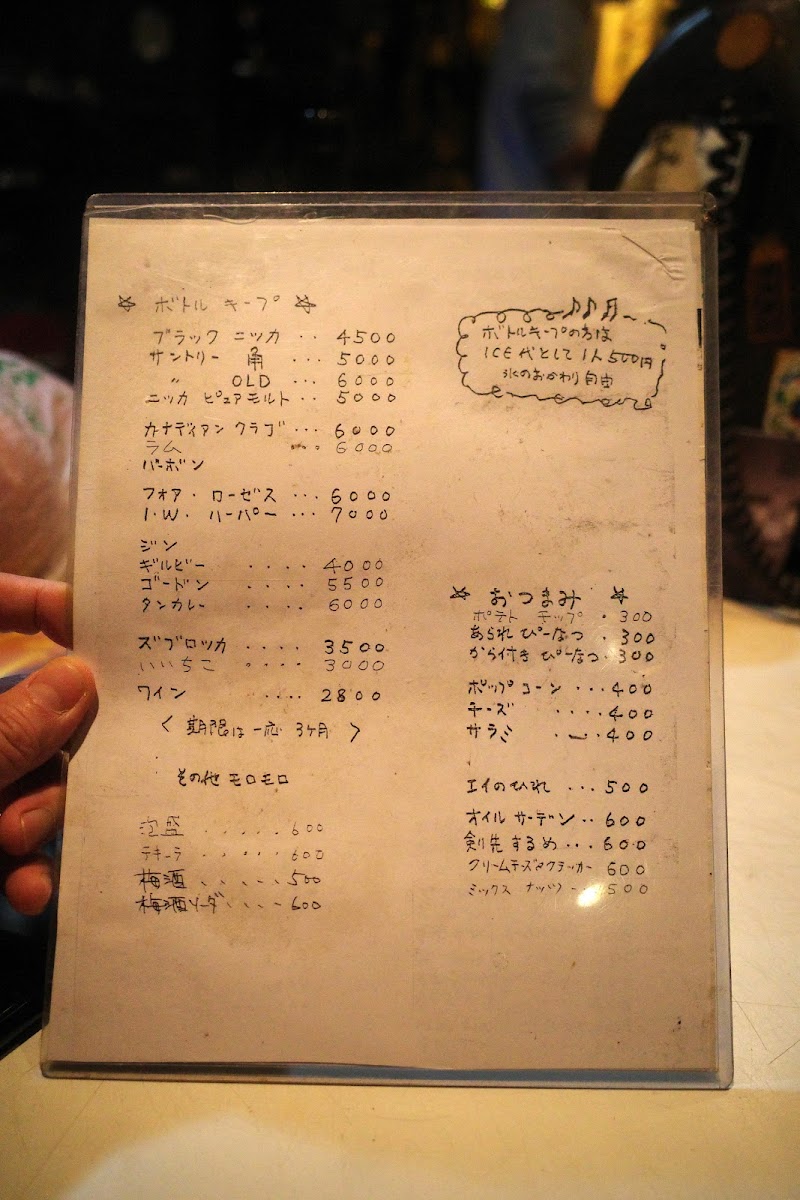 ☆ ボトル キープ ☆
ブラック ニッカ ‥ 4500
サントリー 角 … 5000
〃 OLD … 6000
ニッカ ピュアモルト ‥ 5000
カナディアン クラブ … 6000
ラム … 6000
バーボン
フォア・ローゼス … 6000
I.W. ハーパー … 7000
ジン
ギルビー .... 4000
ゴードン .... 5500
タンカレー .... 6000
ズブロッカ .... 3500
いいちこ .... 3000
ワイン .... 2800
〈 期限は一応 3ヶ月 〉
その他 モロモロ
泡盛 ..... 600
テキーラ ..... 600
梅酒 ..... 500
梅酒ソーダ .... 600
♪♪♬
ボトルキープの方は
ICE代として 1人 500円
氷のおかわり自由
☆ おつまみ ☆
ポテト チップ . 300
あられ ぴーなつ . 300
から付き ぴーなつ . 300
ポップコーン ... 400
チーズ .... 400
サラミ ... 400
エイのひれ ... 500
オイル サーデン .. 600
剣先 するめ ... 600
クリームチーズ&クラッカー 600
ミックス ナッツ ... 500